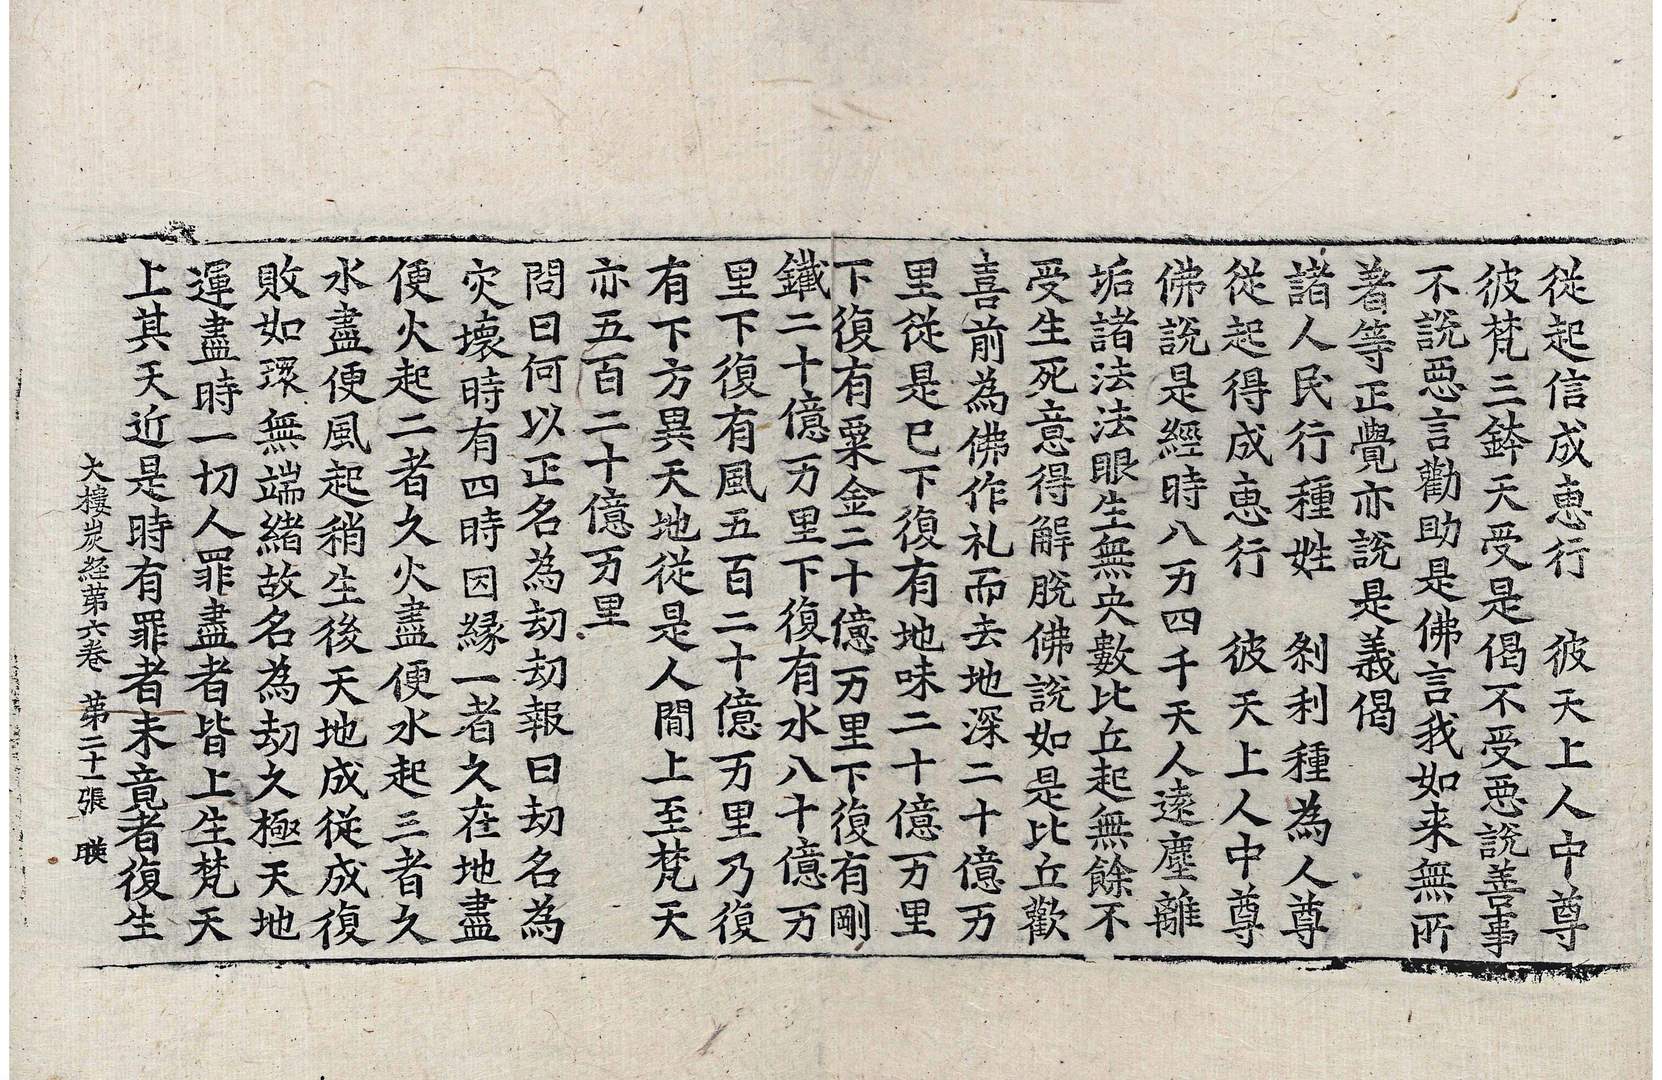 從起信成恵行　彼天上人中尊
彼梵三鉢天受是偈不受惡說善事
不說惡言勸助是佛言我如来無所
著等正覺亦說是義偈
諸人民行種姓　剎利種為人尊
從起得成恵行　彼天上人中尊
佛說是經時八万四千天人遠塵離
垢諸法法眼生無央數比丘起無餘不
受生死意得解脫佛說如是比丘歡
喜前為佛作礼而去地深二十億万
里從是已下復有地味二十億万里
下復有粟金二十億万里下復有剛
鐵二十億万里下復有水八十億万
里下復有風五百二十億万里乃復
有下方異天地從是人閒上至梵天
亦五百二十億万里
問曰何以正名為劫劫報曰劫名為
灾壞時有四時因緣一者久在地盡
便火起二者久火盡便水起三者久
水盡便風起稍生後天地成從成復
敗如環無端緒故名為劫久極天地
運盡時一切人罪盡者皆上生梵天
上其天近是時有罪者未竟者復生
大樓炭經第六卷　第二十一張　映